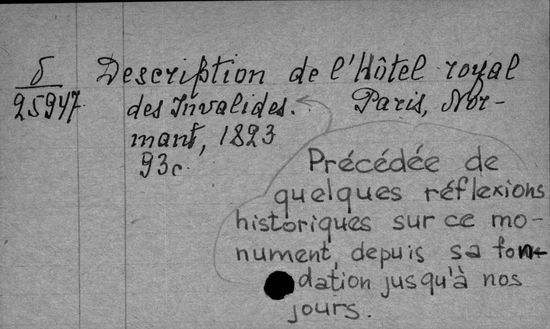 δ
25947
Description de l'Hôtel royal
des Invalides. Paris, Nor-
mant, 1823
93c.
Précédée de
quelques réflexions
historiques sur ce mo-
nument, depuis sa fon-
dation jusqu'à nos
jours.